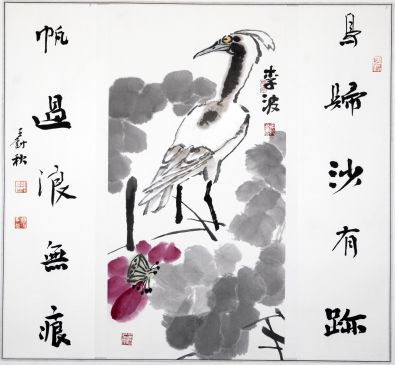 鳥歸沙有跡
李波
帆過浪無痕